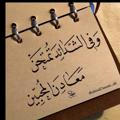 وفي الشدائد تمتحن
معادن المحبين